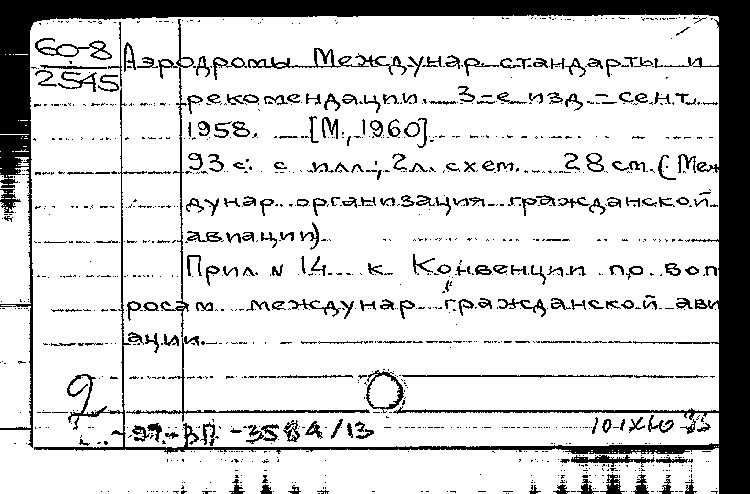 60-8 Аэродромы Междунар. стандарты и
2545
рекомендации. 3-е изд. - сент.
1958. [М., 1960].
93 с. с илл.; 2 л. схем. 28 см. (Меж
дунар. организация гражданской
авиации).
Прил. N 14 к Конвенции по воп
росам междунар. гражданской ави
ации.
2
ВП - 3584/13